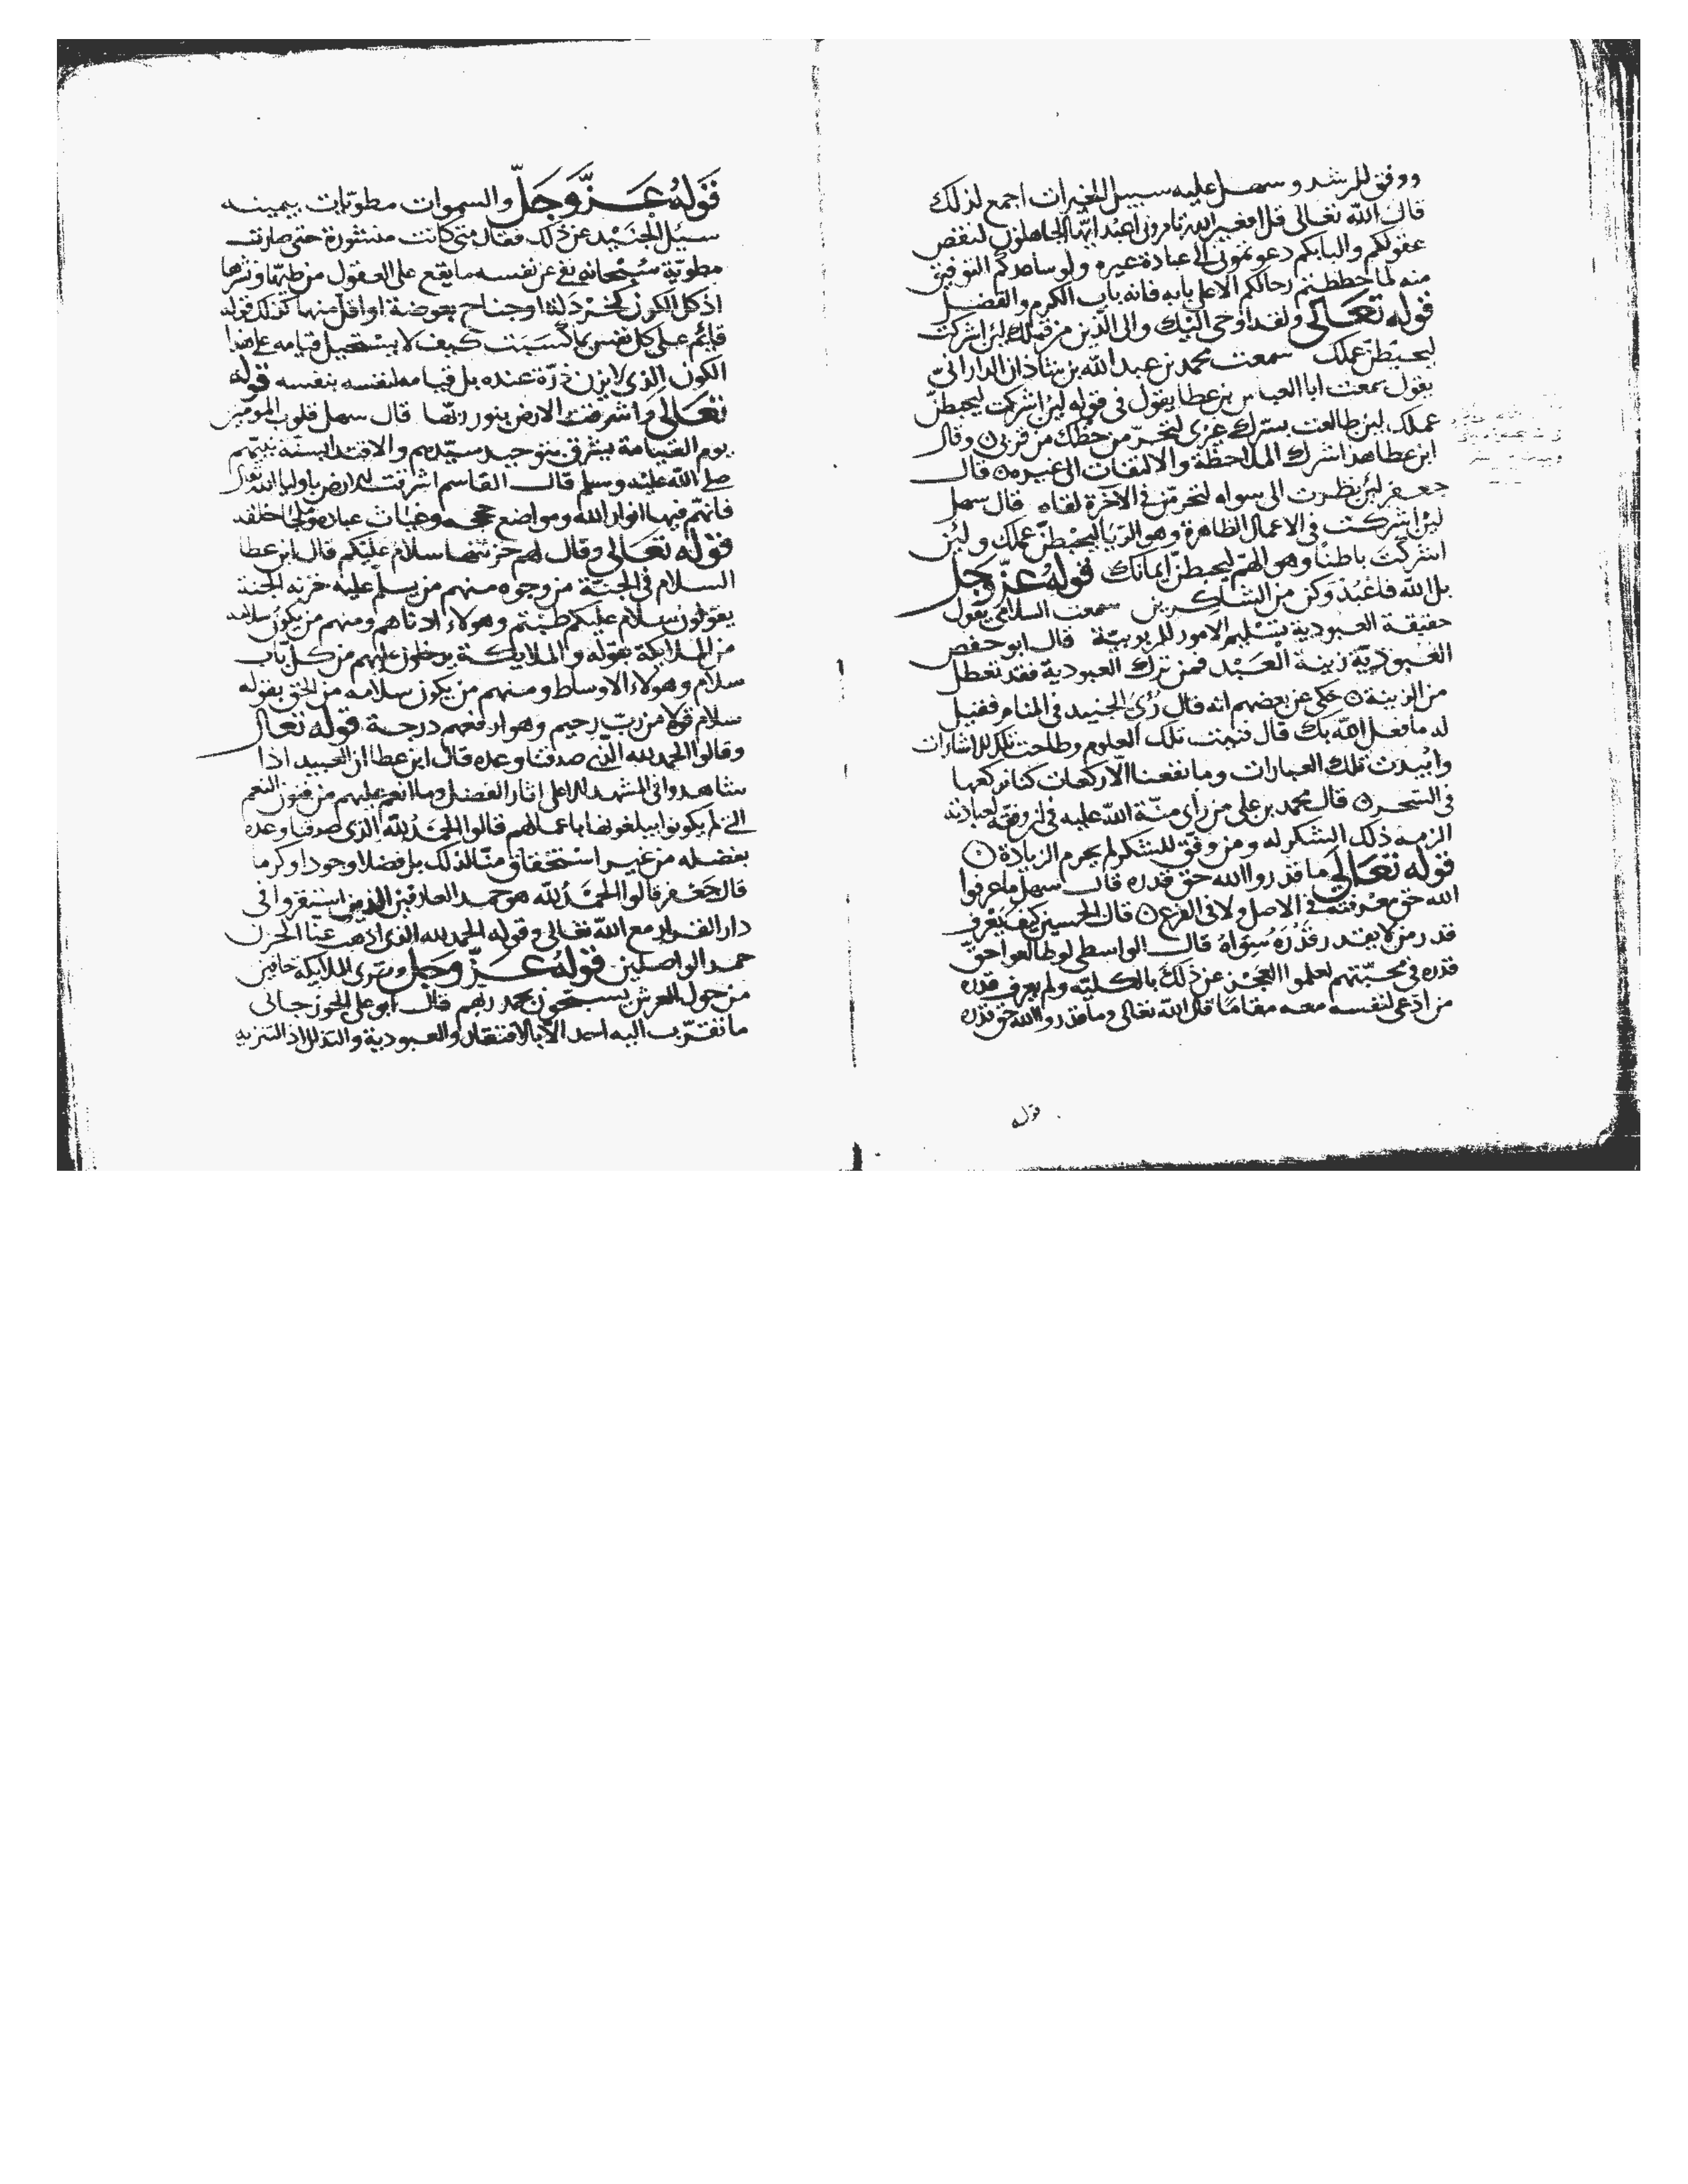 ووفق للرشد وسهل عليه سبيل الخيرات اجمع لذلك
قال الله تعالى قل افغير الله تامرونى اعبد ايها الجاهلون لنقص
عقولكم والبابكم دعوتمونى الى عبادة غيره ولو ساعدكم التوفيق
منه لما حططتم رحالكم الا على بابه فانه باب الكرم والفضل
قوله تعالى ولقد اوحى اليك والى الذين من قبلك لئن اشركت
ليحبطن عملك سمعت محمد بن عبد الله بن شاذان الدارانى
يقول سمعت ابا العباس بن عطا يقول فى قوله لئن اشركت ليحبطن
عملك لئن طالعت بسرك غيرى لتخسرن من حظك من قربى وقال
ابن عطا هذا شرك الملاحظة والالتفات الى غيره قال
جعفر لئن نظرت الى سواه لتحرمن فى الاخرة لقاه قال سهل
لئن اشركت فى الاعمال الظاهرة وهو الريا ليحبطن عملك ولئن
اشركت باطنا وهو الهم ليحبطن ايمانك قوله عز وجل
بل الله فاعبد وكن من الشاكرين سمعت السلامى يقول
حقيقة العبودية تسليم الامور للربوبية قال ابو حفص
العبودية زينة العبد فمن ترك العبودية فقد تعطل
من الزينة حكى عن بعضهم انه قال رؤى الجنيد فى المنام فقيل
له ما فعل الله بك قال فنيت تلك العلوم وطاحت تلك الاشارات
وابيدت تلك العبارات وما نفعنا الا ركعات كنا نركعها
فى السحر قال محمد بن على من راى منة الله عليه فى ان وفقه لعبادته
الزمه ذلك الشكر له ومن وفق للشكر لم يحرم الزيادة
قوله تعالى ما قدروا الله حق قدره قال سهل ما عرفوا
الله حق معرفته فى الاصل ولا فى الفرع قال الحسين كيف يعرف
قدر من لا يقدر قدره سواه قال الواسطى لو طالعوا حق
قدره فى محبتهم لعلموا العجز عن ذلك بالكلية ولم يعرف قدره
من ادعى لنفسه معه مقاما قال الله تعالى وما قدروا الله حق قدره
قوله
قوله عز وجل والسموات مطويات بيمينه
سئل الجنيد عن ذلك فقال متى كانت منشورة حتى صارت
مطوية سبحانه نفى عن نفسه ما يقع على العقول من طيها ونشرها
اذ كل الكون كخردلة او جناح بعوضة او اقل منها كذلك قوله
قائم على كل نفس بما كسبت كيف لا يستحيل قيامه على هذا
الكون الذى لا يزن ذرة عنده بل قيامه لنفسه بنفسه قوله
تعالى واشرقت الارض بنور ربها قال سهل قلوب المومنين
يوم القيامة يشرق بتوحيد سيدهم والاقتدا بسنة نبيهم
صلى الله عليه وسلم قال القاسم اشرقت الارض باوليا الله
فانهم فيها انوار الله ومواضع حججه وغياث عباده وملجا خلقه
قوله تعالى وقال لهم خزنتها سلام عليكم قال ابن عطا
السلام فى الجنة من وجوه منهم من يسلم عليه خزنة الجنة
يقولون سلام عليكم طبتم وهولاء ادناهم ومنهم من يكون سلامه
من الملائكة بقوله والملايكة يدخلون عليهم من كل باب
سلام وهولاء الاوساط ومنهم من يكون سلامه من الحق بقوله
سلام قولا من رب رحيم وهو ارفعهم درجة قوله تعالى
وقالوا الحمد لله الذى صدقنا وعده قال ابن عطا ان العبيد اذا
شاهدوا فى المشهد الاعلى اثار الفضل وما انعم عليهم من فنون النعم
التى لم يكونوا يبلغونها باعمالهم قالوا الحمد لله الذى صدقنا وعده
بفضله من غير استحقاق منا لذلك بل فضلا وجودا وكرما
قال جعفر قالوا الحمد لله هو حمد العارفين الذين استقروا فى
دار القرار مع الله تعالى وقوله الحمد لله الذى اذهب عنا الحزن
حمد الواصلين قوله عز وجل وترى الملايكة حافين
من حول العرش يسبحون بحمد ربهم قال ابو على الجوزجانى
ما تقرب اليه احد الا بالافتقار والعبودية والتذلل اذ التنزيه